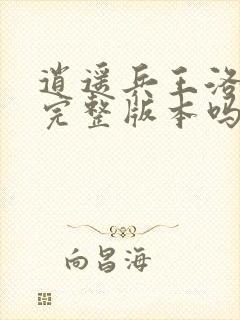 逍遥兵王洛
完整版本吗
向昌海